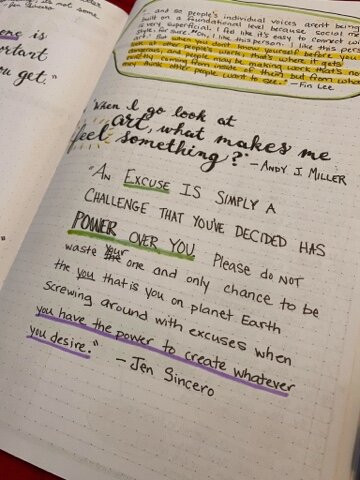 it's not some
is
ortant
u get."
and so people's individual voices aren't being
built on a foundational level because social
is very superficial. I feel like it's easy to connect
style, for sure. "Oh, I like this person. I like this
But when you don't know yourself before you
look at other people's work, that's where it gets
dangerous. People may be making work that's not
really coming from inside of them but from
other people want to see." -Fin Lee
"When I go look at
art, what makes me
feel something?" -ANDY J MILLER
"AN EXCUSE IS SIMPLY A
CHALLENGE THAT YOU'VE DECIDED HAS
POWER OVER YOU. Please do NOT
waste your one and only chance to be
the you that is you on planet Earth
screwing around with excuses when
you have the power to create whatever
you desire."
- Jen Sincero